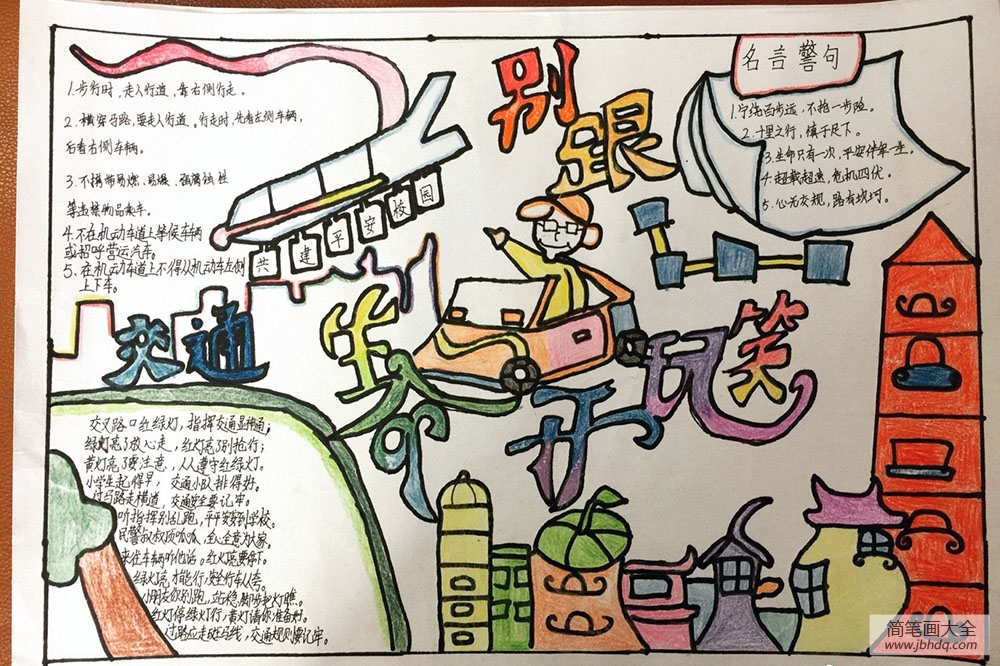 别跟
生命开玩笑
名言警句
1.宁绕百步远，不抢一步险。
2.十里之行，慎于足下。
3.生命只有一次，平安伴你一生。
4.超载超速，危机四伏。
5.心无交规，路有坎坷。
1.步行时，走人行道、靠右侧行走。
2.横穿马路，要走人行道。行走时，先看左侧车辆，
后看右侧车辆。
3.不携带易燃、易爆、强腐蚀性
等违禁物品乘车。
4.不在机动车道上等候车辆
或招呼营运汽车。
5.在机动车道上不得从机动车左侧
上下车。
共建平安校园
交通
交叉路口红绿灯，指挥交通显神通；
绿灯亮了放心走，红灯亮了别抢行；
黄灯亮了要注意，人人遵守红绿灯。
小学生起得早，交通小队排得好。
过马路走横道，交通安全要记牢。
听指挥别乱跑，平平安安到学校。
民警叔叔顶呱呱，全心全意为大家。
来往车辆听他话。红灯亮要停下。
绿灯亮才能行，安全行车人人夸。
小朋友你别跑，站稳脚步把灯瞧。
红灯停绿灯行，黄灯请你准备好。
过路应走斑马线，交通规则要记牢。
简笔画大全
www.jbhdq.com